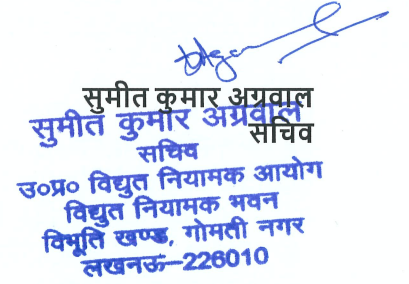 सुमीत कुमार अग्रवाल
सचिव
सुमीत कुमार अग्रवाल
सचिव
उ०प्र० विद्युत नियामक आयोग
विद्युत नियामक भवन
विभूति खण्ड, गोमती नगर
लखनऊ–226010